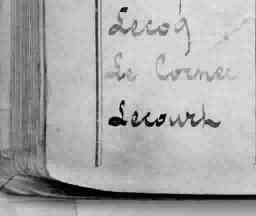 Lecoq
Le Cornec
Lecourt